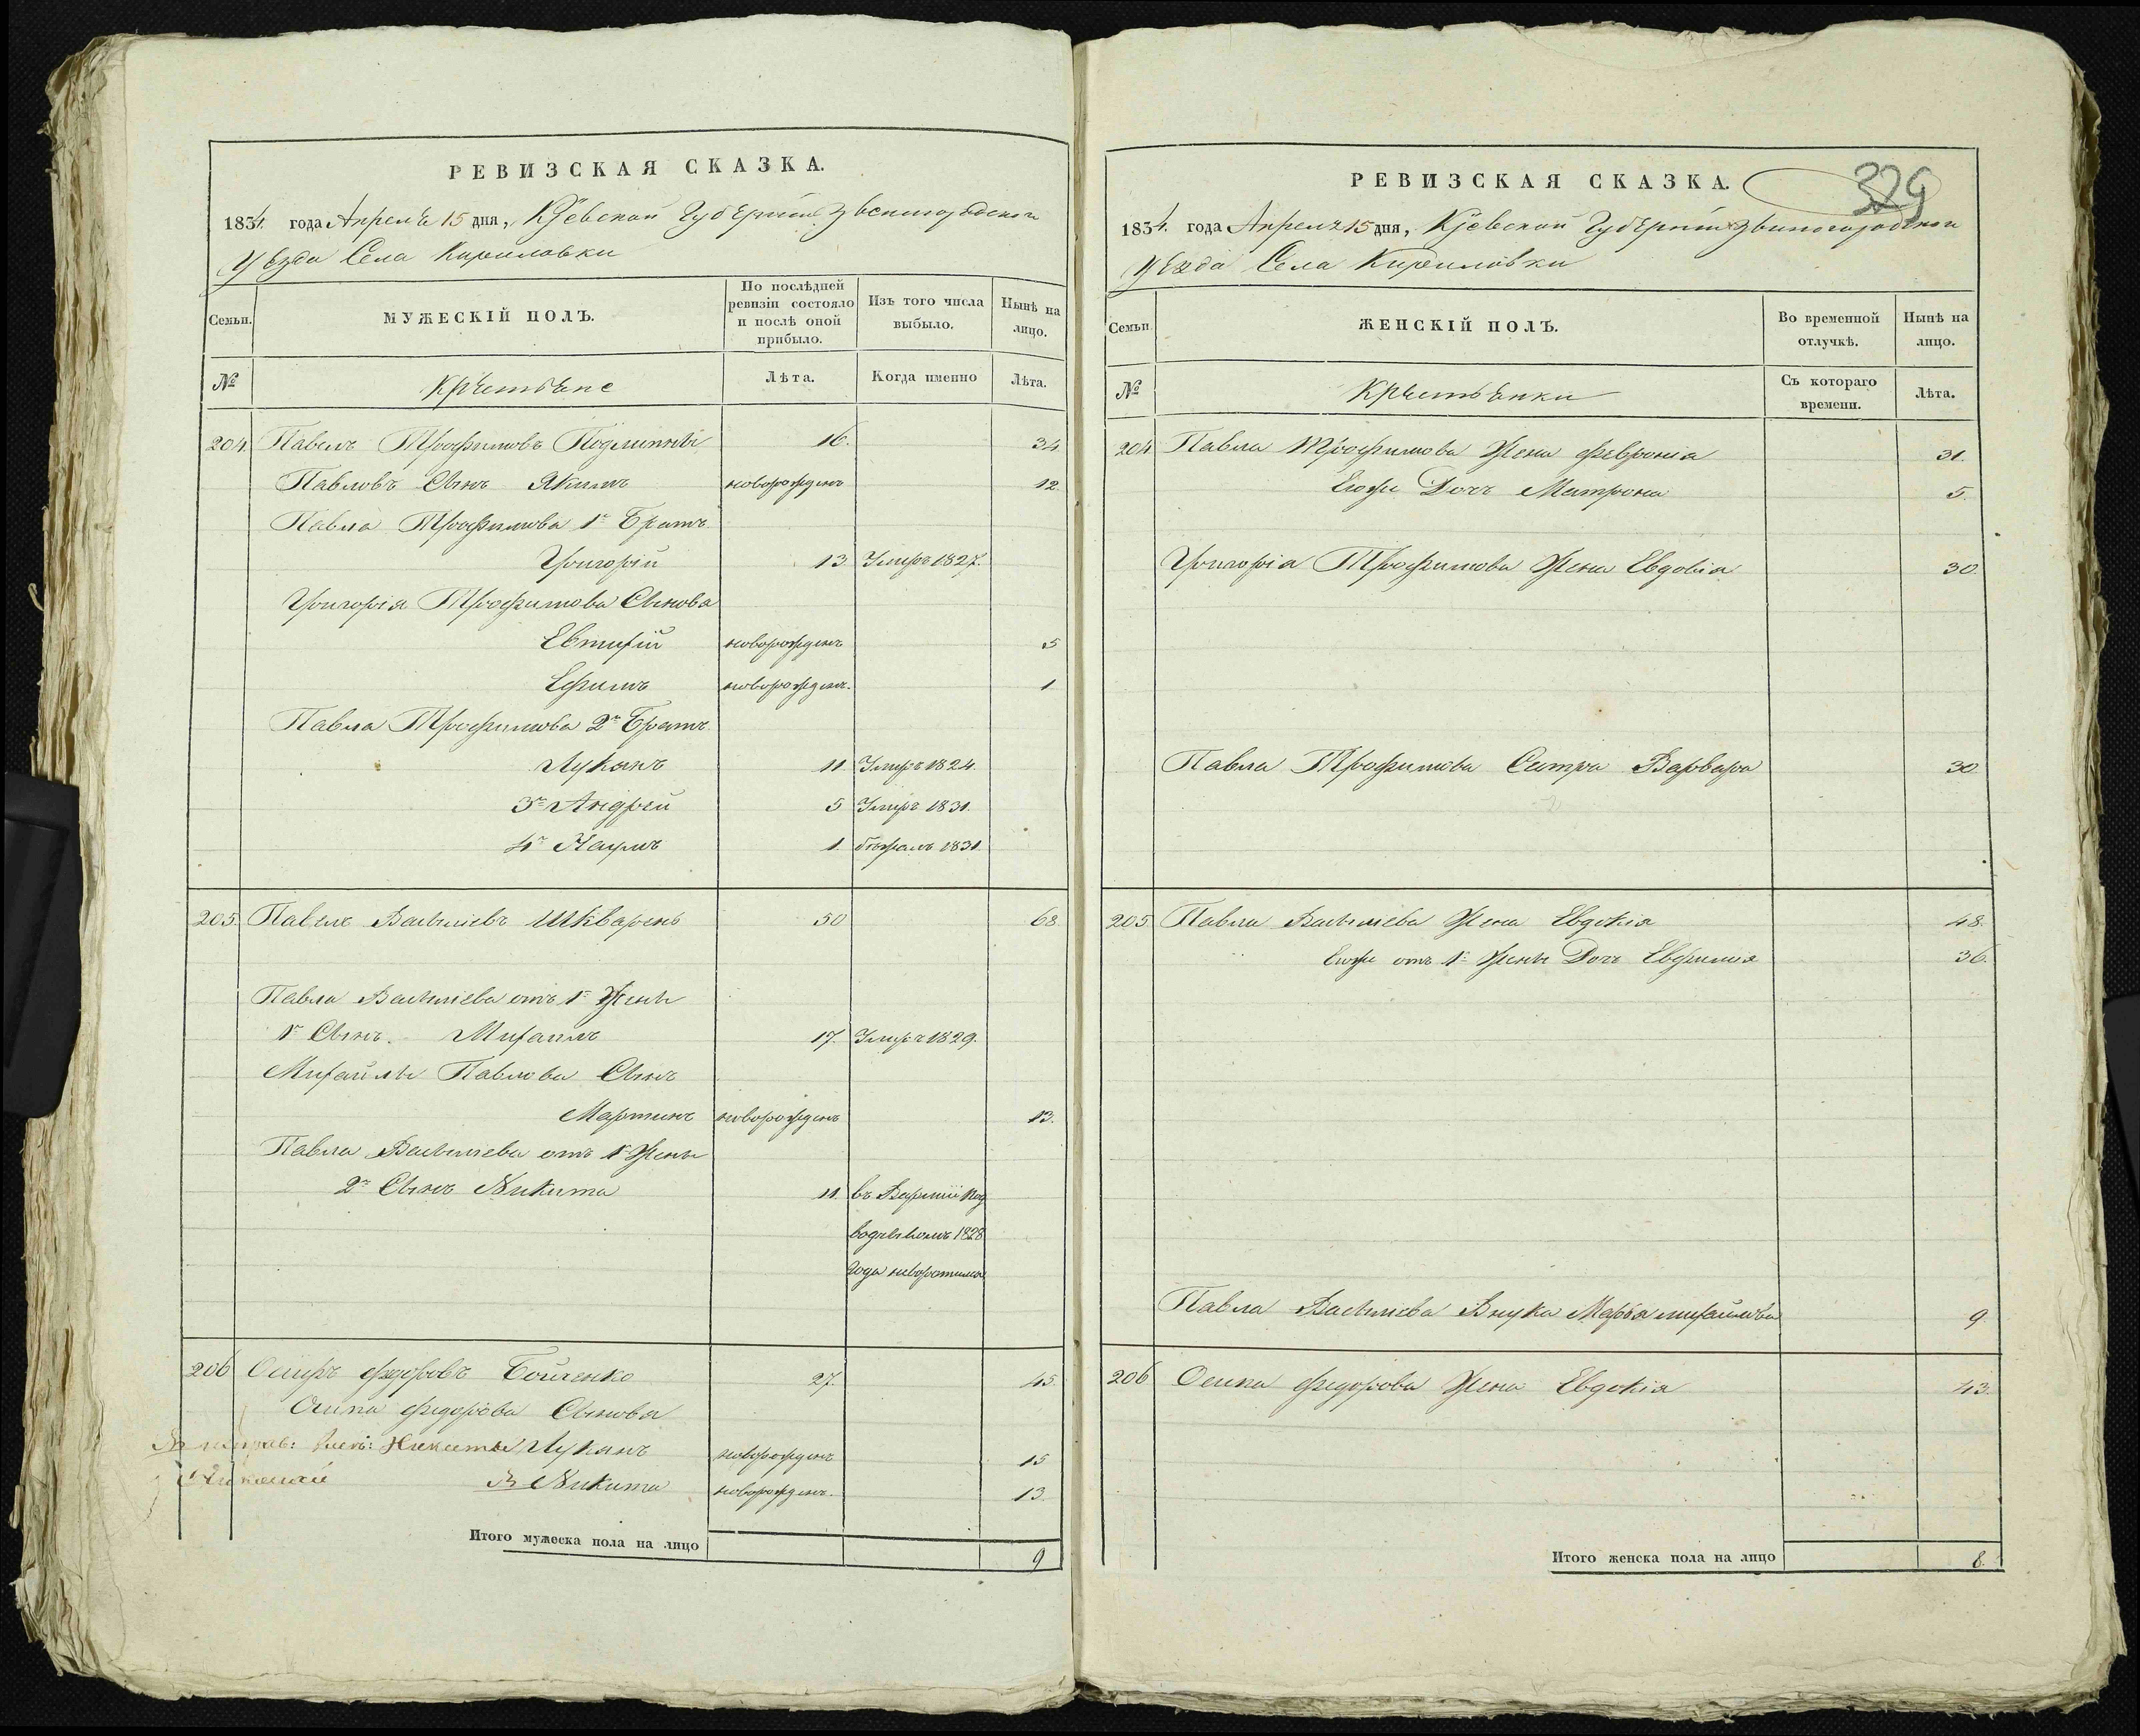 РЕВИЗСКАЯ СКАЗКА.
1834. года Апреля 15 дня, Кіевской Губерніи Звенигородского
Уезда Села Кириловки
Семьи.
МУЖЕСКІЙ ПОЛЪ.
По послѣдней ревизіи состояло и послѣ оной прибыло.
Изъ того числа выбыло.
Нынѣ на лицо.
№
Крестьяне
Лѣта.
Когда именно
Лѣта.
204. Павелъ Трофимовъ 16. 34
Павловъ Сынъ Якимъ новорожденъ 12.
Павла Трофимова 1й Братъ
Григорій 13 Умеръ 1827.
Григорія Трофимова Сынова
Евтифій новорожденъ 5
Ефимъ новорожденъ. 1
Павла Трофимова 2й Братъ
Лукянъ 11. Умеръ 1824.
3й Андрей 5 Умеръ 1831.
4й Наумъ 1. бежалъ 1831.
205. Павелъ Васильевъ Шкварень 50 68
Павла Васильева отъ 1й Жены
1й Сынъ. Михаилъ 17. Умеръ 1829.
Михайлы Павлова Сынъ
Мартинъ новорожденъ 13.
Павла Васильева отъ 1й Жены
2й Сынъ Никита 11. въ Вармии под
водчикомъ 1828
года
206 Осипъ Федоровъ Бойченко 27. 45.
Осипа Федорова Сыновя
Никиты Лукянъ новорожденъ 15
Николай Никита новорожденъ. 13.
Итого мужеска пола на лицо 9
РЕВИЗСКАЯ СКАЗКА.
329
1834. года Апреля 15 дня, Кіевской Губерніи Звиногородскои
Уезда Села Кириловки
Семьи.
ЖЕНСКІЙ ПОЛЪ.
Во временной отлучкѣ.
Нынѣ на лицо.
№
Крестьянки
Съ котораго времени.
Лѣта.
204 Павла Трофимова Жена Февронія 31.
Егоже Дочь Матрона 5.
Григорія Трофимова Жена Евдокія 30
Павла Трофимова Сестра Варвара 30
205 Павла Васильева Жена Евдокія 48.
Егоже отъ 1й Жены Дочь Евфимія 36.
Павла Васильева Внука Марья михайлова 9
206 Осипа Федорова Жена Евдокія 43.
Итого женска пола на лицо 8.